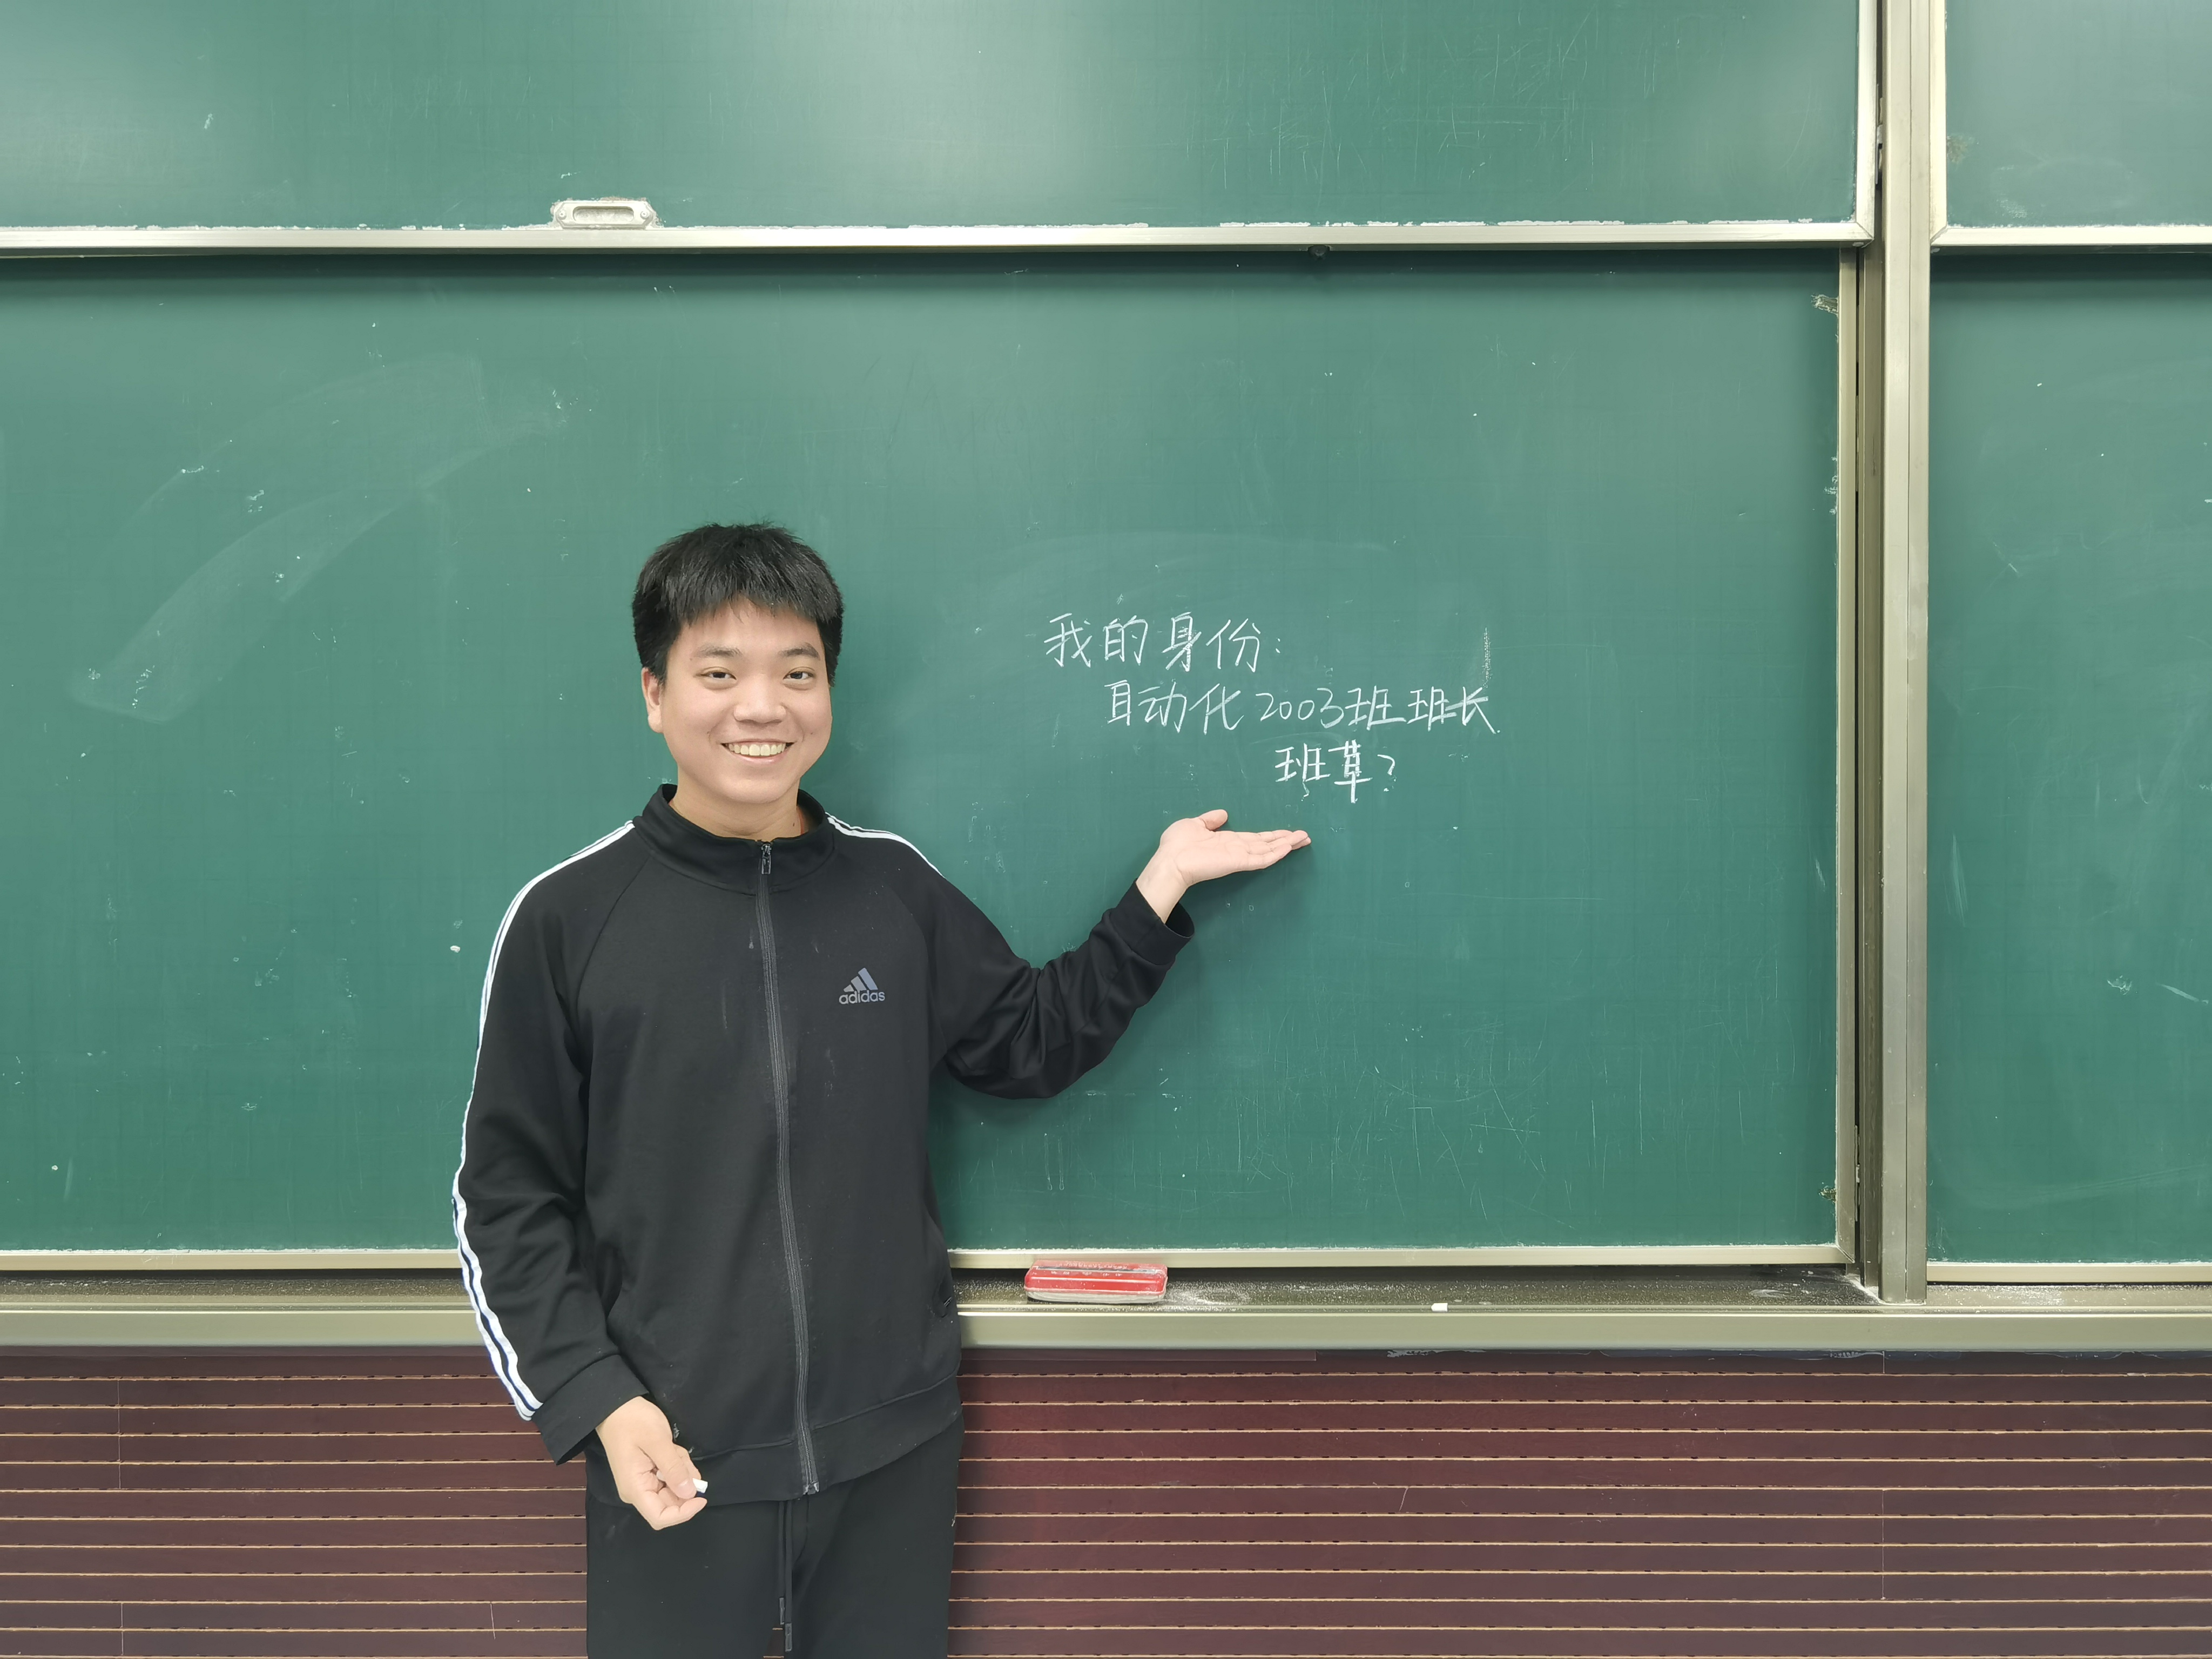 我的身份:
自动化2003班班长
班草?
adidas